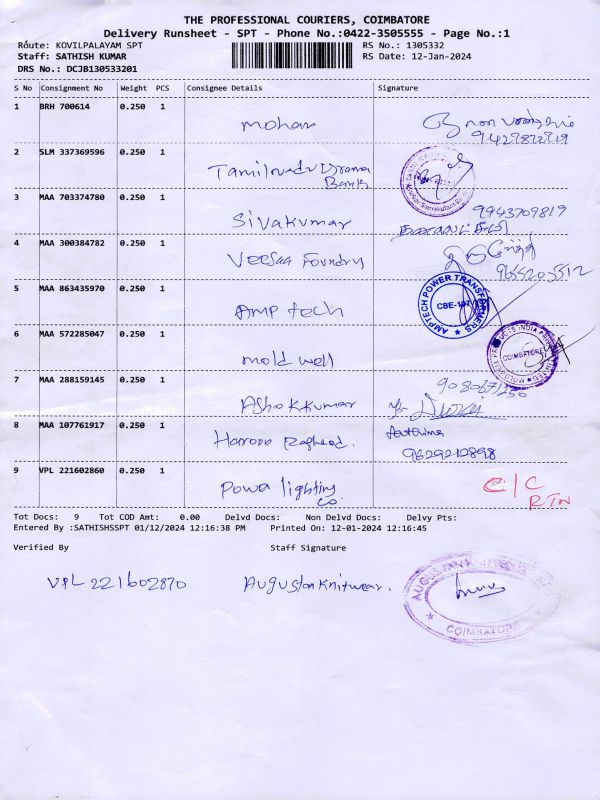 THE PROFESSIONAL COURIERS, COIMBATORE
Delivery Runsheet - SPT - Phone No.:0422-3505555 - Page No.:1
Route: KOVILPALAYAM SPT RS No.: 1305332
Staff: SATHISH KUMAR RS Date: 12-Jan-2024
DRS No.: DCJB130533201
S No Consignment No Weight PCS Consignee Details Signature
1 BRH 700614 0.250 1 mohan
2 SLM 337369596 0.250 1 Tamilnadu Grama
Bank
3 MAA 703374780 0.250 1 Sivakumar 9943709819
4 MAA 300384782 0.250 1 Veesaa Foundry
9655205512
5 MAA 863435970 0.250 1 Amp tech
AMPTECH POWER TRANSFORMERS
6 MAA 572285047 0.250 1 mold well
COIMBATORE
7 MAA 288159145 0.250 1 Ashokkumar
8 MAA 107761917 0.250 1 Fathima
9629212898
9 VPL 221602860 0.250 1 Powa lighting
Co. C/C
RTN
Tot Docs: 9 Tot COD Amt: 0.00 Delvd Docs: Non Delvd Docs: Delvy Pts:
Entered By :SATHISHSSPT 01/12/2024 12:16:38 PM Printed On: 12-01-2024 12:16:45
Verified By Staff Signature
VPL 221602870 Augustan Knitwear.
COIMBATORE